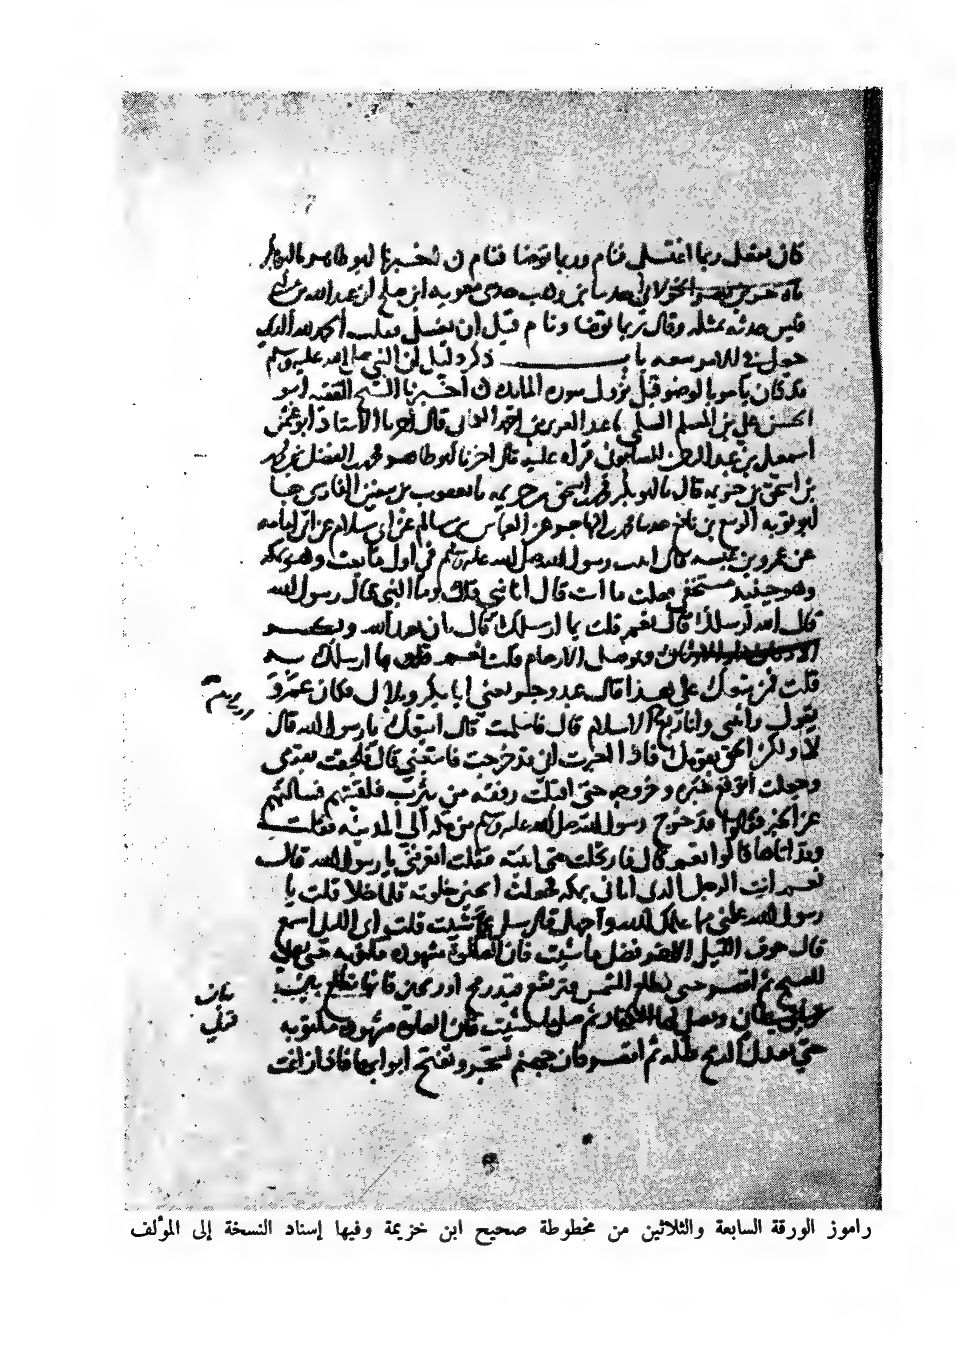 كان يفعل ربما اغتسل فنام وربما توضا فنام ن اخبرنا ابو طاهر نا ابو بكر
ناه نصر بن بحر الخولاني حدثنا بن وهب حدثني معويه بن صلح ان عبد الله بن ابي
قيس حدثه بمثله وقال ربما توضا ونام قبل ان يغتسل فقلت الحمد لله الذي
جعل في الامر سعه باب ذكر دليل ان النبي صلى الله عليه وسلم
قد كان يامر بالوضو قبل نزول سورة المايدة ن اخبرنا الشيخ الفقيه ابو
الحسن علي بن المسلم السلمي نا عبد العزيز بن احمد قال اخبرنا الاستاذ ابو عثمن
اسمعيل بن عبد الرحمن الصابوني قراة عليه قال اخبرنا ابو طاهر محمد بن الفضل بن محمد
بن اسحق بن خزيمه قال نا ابو بكر محمد بن اسحق بن خزيمه نا يعقوب بن سفين الفارسي حدثنا
ابو توبه الربيع بن نافع حدثنا محمد بن المهاجر عن العباس بن سالم عن ابي سلام عن ابي امامه
عن عمرو بن عبسه قال اتيت رسول الله صلى الله عليه وسلم في اول ما بعث وهو بمكه
وهو حينيذ مستخفي فقلت ما انت قال انا نبي قلت وما النبي قال رسول الله
قال الله ارسلك قال نعم قلت بما ارسلك قال بان نعبد الله ونكسر
الاوثان ونوصل الارحام قلت نعم ما ارسلك به
قلت فمن تبعك على هذا قال عبد وحر يعني ابا بكر وبلال فكان عمرو
يقول رايتني وانا ربع الاسلام قال فاسلمت قال اتبعك يا رسول الله قال
لا ولكن الحق بقومك فاذا اخبرت اني قد خرجت فاتبعني قال فلحقت بقومي
وجعلت اتوقع خبره وخروجه حتى اقبلت رفقه من يثرب فلقيتهم فسالتهم
عن الخبر فقالوا قد خرج رسول الله صلى الله عليه وسلم من مكه الى المدينه فقلت
وقد اتاها قالوا نعم قال فارتحلت حتى اتيته فقلت اتعرفني يا رسول الله قال
نعم انت الرجل الذي اتاني بمكه فجعلت اتحين خلوته فلما خلا قلت يا
رسول الله علمني مما علمك الله واجهل قال سل عما شيت قلت اي الليل اسمع
قال جوف الليل الاخر فصل ما شيت فان الصلوة مشهودة مكتوبه حتى تصلي
الصبح ثم اقصر حتى تطلع الشمس فترتفع قيد رمح او رمحين فانها تطلع بين
قرني شيطان وتصلي لها الكفار ثم صل ما شيت فان الصلوة مشهودة مكتوبه
حتى يعدل الرمح ظله ثم اقصر فان جهنم تسجر وتفتح ابوابها فاذا زاغت
راموز الورقة السابعة والثلاثين من مخطوطة صحيح ابن خزيمة وفيها إسناد النسخة إلى المؤلف